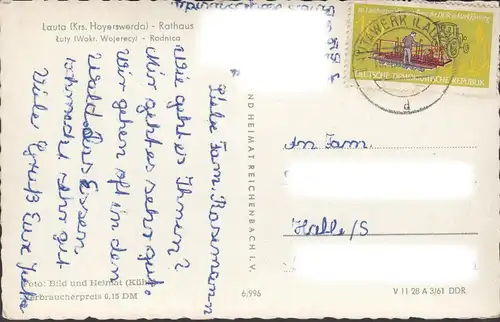 Lauta (Krs. Hoyerswerda) - Rathaus
Łuty (Wokr. Wojerecy) - Radnica
Liebe Fam. Rosemann
Wie geht es Ihnen?
Mir geht es sehr gut.
Wir gehen oft in den
Wald. Das Essen
schmeckt sehr gut
Viele Grüß Eure
ND HEIMAT REICHENBACH I. V.
DEUTSCHE DEMOKRATISCHE REPUBLIK
d
An Fam.
Halle/S
Foto: Bild und Heimat (Kühn)
Verbraucherpreis 0,15 DM
6/996
V 11 28 A 3/61 DDR